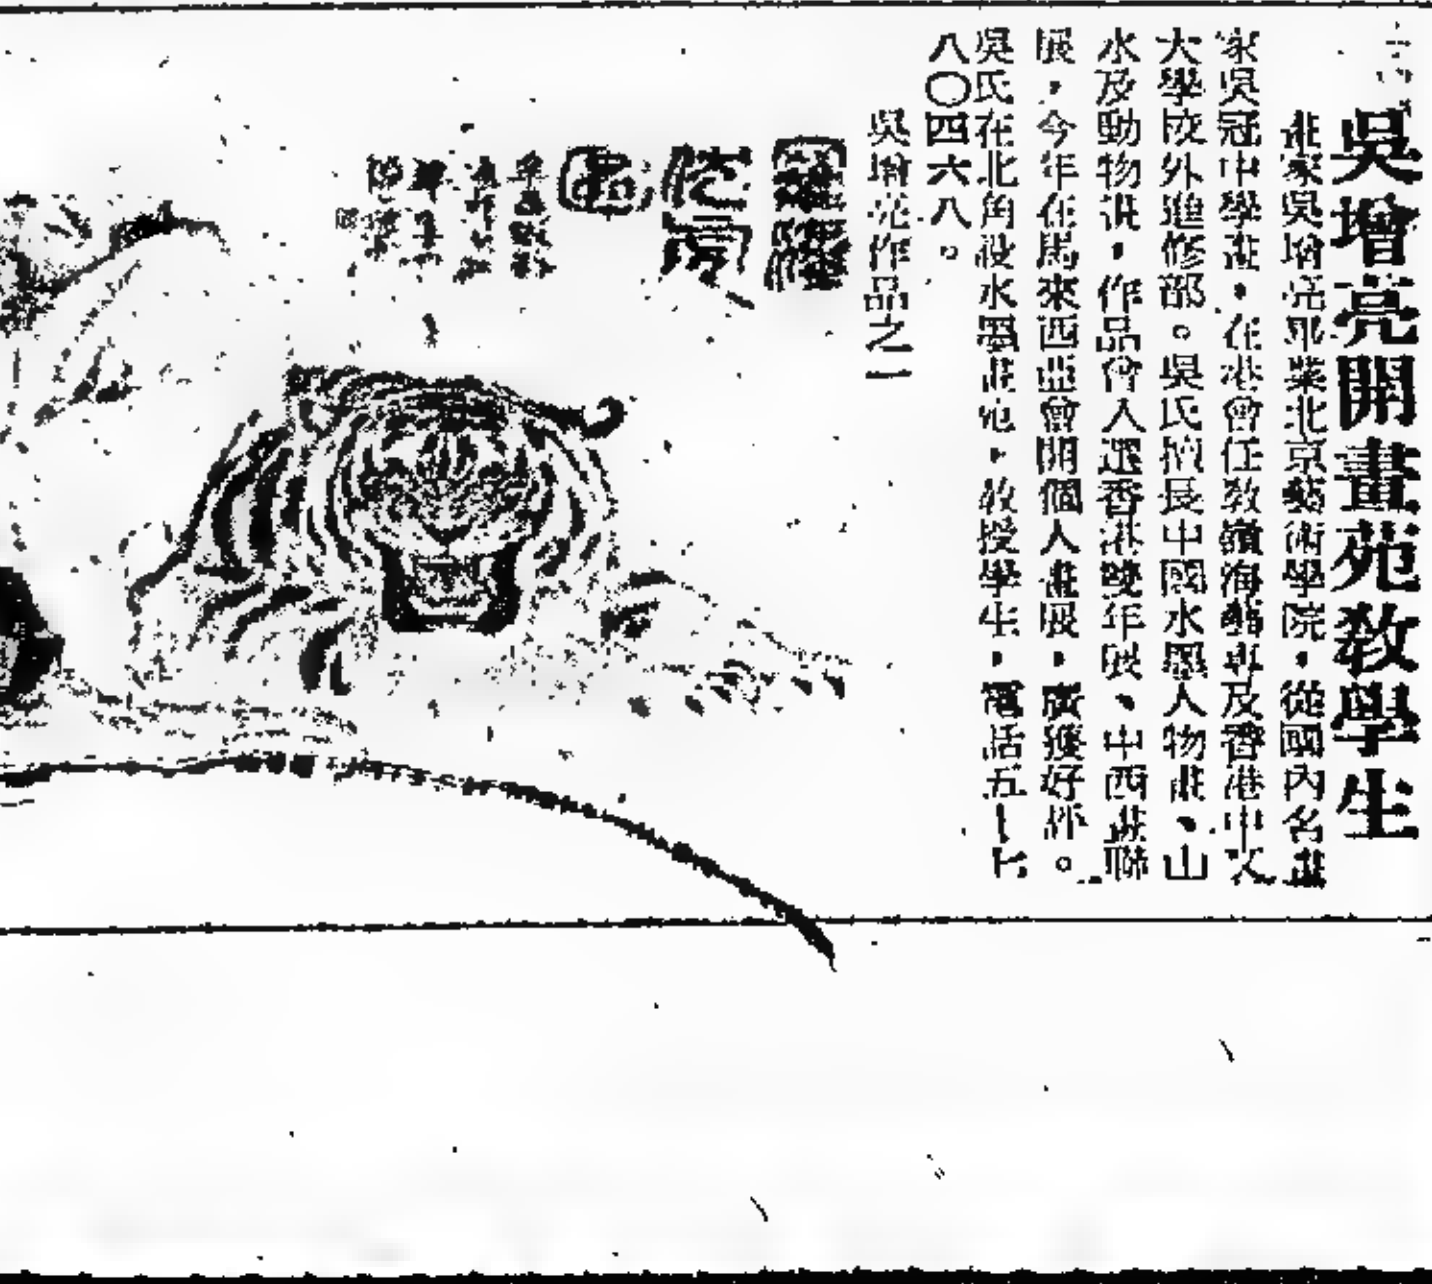 吳增亮開畫苑教學生
畫家吳增亮畢業北京藝術學院，從國內名畫
家吳冠中學畫，在港曾任教嶺海藝專及香港中文
大學校外進修部。吳氏擅長中國水墨人物畫、山
水及動物畫，作品曾入選香港雙年展、中西畫聯
展，今年在馬來西亞曾開個人畫展，廣獲好評。
吳氏在北角設水墨畫苑，教授學生，電話五—七
八〇四六八。
吳增亮作品之一